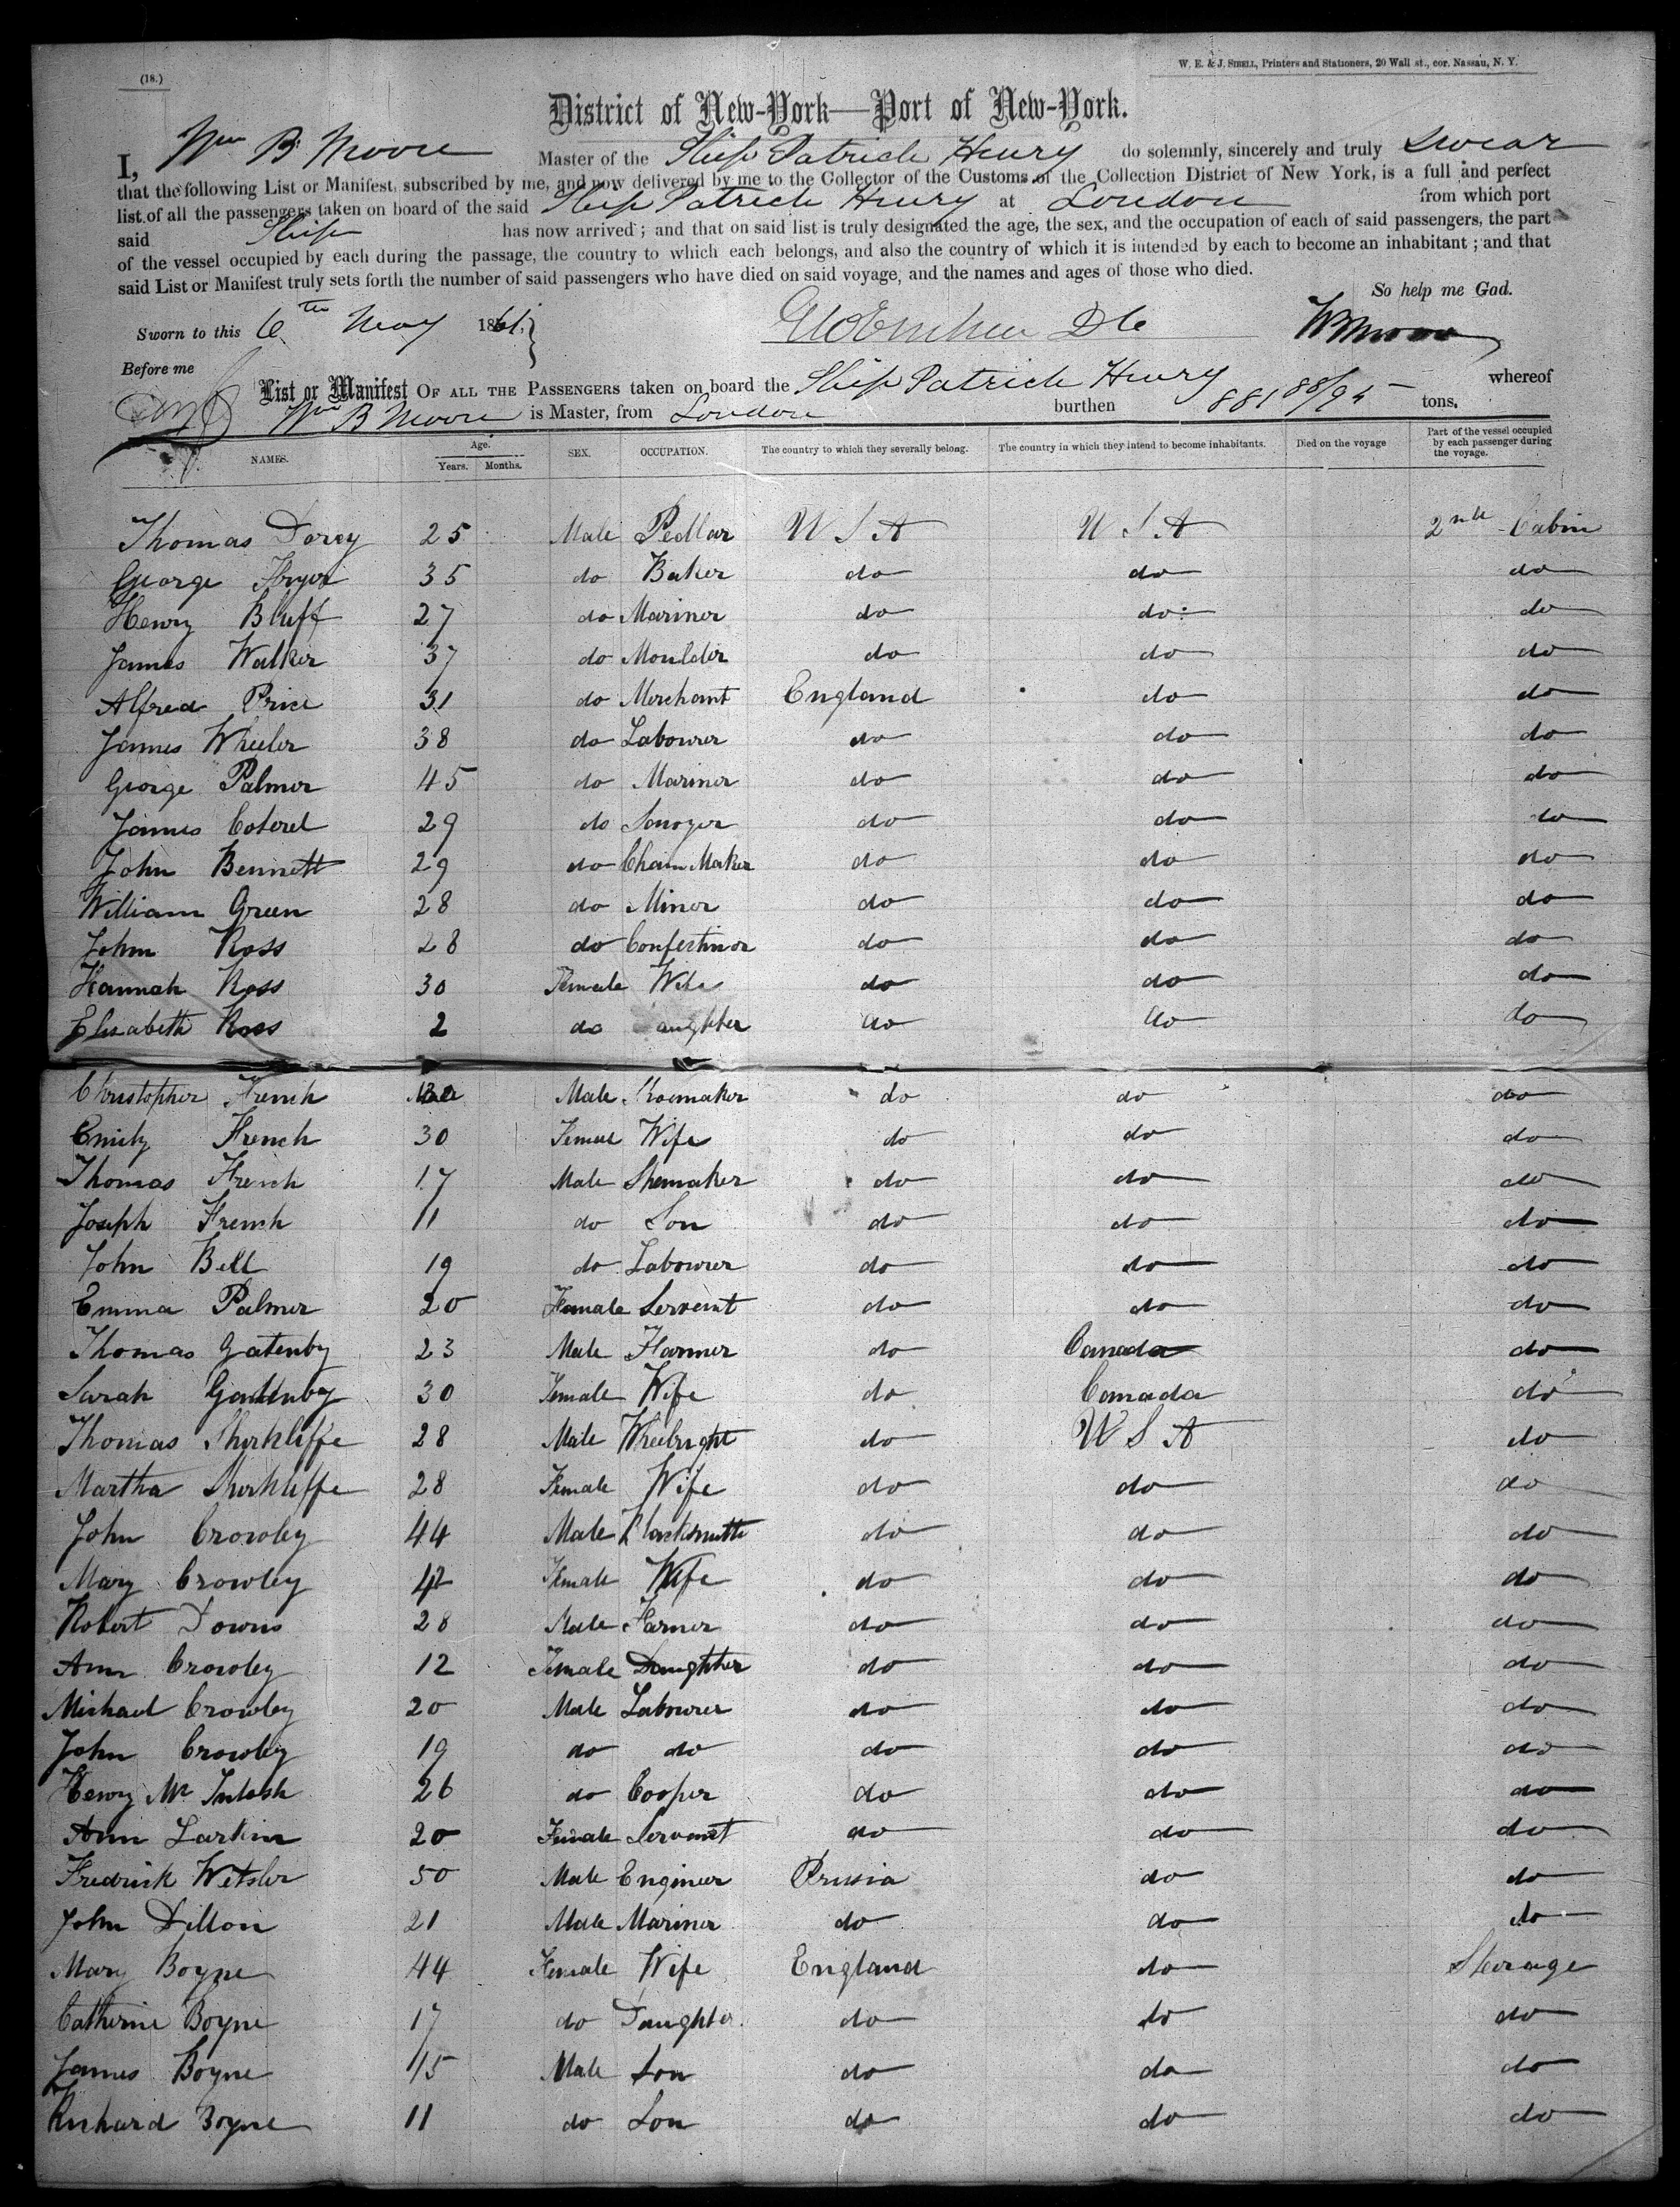 (18.)
W. E. & J. SIBELL, Printers and Stationers, 20 Wall st., cor. Nassau, N. Y.
District of New-York—Port of New-York.
I, Wm B Moore Master of the Ship Patrick Henry do solemnly, sincerely and truly swear
that the following List or Manifest, subscribed by me, and now delivered by me to the Collector of the Customs of the Collection District of New York, is a full and perfect
list of all the passengers taken on board of the said Ship Patrick Henry at London from which port
said Ship has now arrived; and that on said list is truly designated the age, the sex, and the occupation of each of said passengers, the part
of the vessel occupied by each during the passage, the country to which each belongs, and also the country of which it is intended by each to become an inhabitant; and that
said List or Manifest truly sets forth the number of said passengers who have died on said voyage, and the names and ages of those who died.
So help me God.
Sworn to this 6th May 1861. WBMoore
Before me
List or Manifest OF ALL THE PASSENGERS taken on board the Ship Patrick Henry whereof
Wm B Moore is Master, from London burthen 881 88/95 tons.
NAMES. Age. Years. Months. SEX. OCCUPATION. The country to which they severally belong. The country in which they intend to become inhabitants. Died on the voyage Part of the vessel occupied by each passenger during the voyage.
Thomas Dorey 25 Male Pedlar U S A U S A 2nd Cabin
George Fryer 35 do Baker do do do
Henry Bluff 27 do Mariner do do do
James Walker 37 do Moulder do do do
Alfred Price 31 do Merchant England do do
James Wheeler 38 do Labourer do do do
George Palmer 45 do Mariner do do do
James Coterel 29 do do do do
John Bennett 29 do Chain Maker do do do
William Green 28 do Miner do do do
John Ross 28 do Confectinor do do do
Hannah Ross 30 Female Wife do do do
Elizabeth Ross 2 do aughter do do do
Christopher French Male Shoemaker do do do
Emily French 30 Female Wife do do do
Thomas French 17 Male Shemaker do do do
Joseph French 11 do Son do do do
John Bell 19 do Labourer do do do
Emma Palmer 20 Female Servent do do do
Thomas Gatenby 23 Male Farmer do Canada do
Sarah Gatenby 30 Female Wife do Canada do
Thomas Shirkliffe 28 Male Wheelright do U S A do
Martha Shirkliffe 28 Female Wife do do do
John Crowley 44 Male Blacksmith do do do
Mary Crowley 42 Female Wife do do do
Robert Downs 28 Male Farmer do do do
Ann Crowley 12 Female Daughter do do do
Michael Crowley 20 Male Labourer do do do
John Crowley 19 do do do do do
Henry Mc Intosh 26 do Cooper do do do
Ann Larkin 20 Female Servant do do do
Fredrick Wetsler 50 Male Engineer Prusia do do
John Dillon 21 Male Mariner do do do
Mary Boyne 44 Female Wife England do Sterage
Catherine Boyne 17 do Daughter do do do
James Boyne 15 Male Son do do do
Richard Boyne 11 do Son do do do